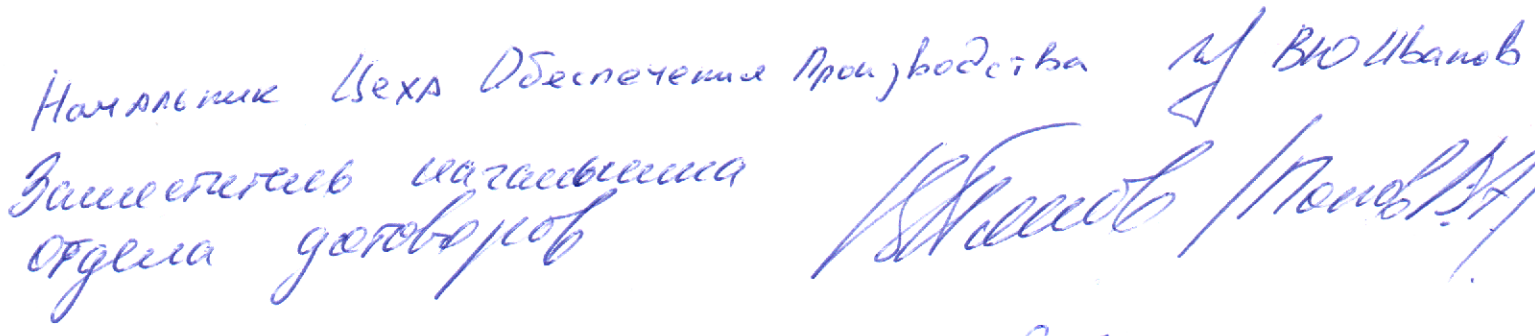 Начальник Цеха Обеспечения Производства ВЮ Иванов
Заместитель начальника /Попов В.Н/
отдела договоров